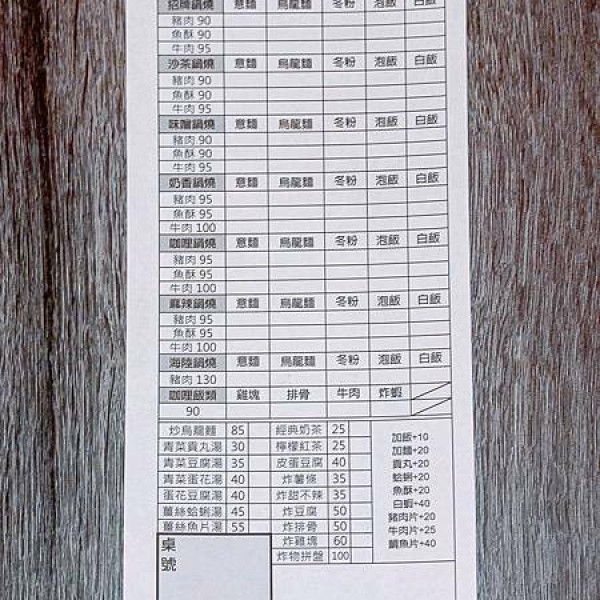 招牌鍋燒 意麵 烏龍麵 冬粉 泡飯 白飯
豬肉 90
魚酥 90
牛肉 95
沙茶鍋燒 意麵 烏龍麵 冬粉 泡飯 白飯
豬肉 90
魚酥 90
牛肉 95
味噌鍋燒 意麵 烏龍麵 冬粉 泡飯 白飯
豬肉 90
魚酥 90
牛肉 95
奶香鍋燒 意麵 烏龍麵 冬粉 泡飯 白飯
豬肉 95
魚酥 95
牛肉 100
咖哩鍋燒 意麵 烏龍麵 冬粉 泡飯 白飯
豬肉 95
魚酥 95
牛肉 100
麻辣鍋燒 意麵 烏龍麵 冬粉 泡飯 白飯
豬肉 95
魚酥 95
牛肉 100
海陸鍋燒 意麵 烏龍麵 冬粉 泡飯 白飯
豬肉 130
咖哩飯類 雞塊 排骨 牛肉 炸蝦
90
炒烏龍麵 85
青菜貢丸湯 30
青菜豆腐湯 35
青菜蛋花湯 40
蛋花豆腐湯 40
薑絲蛤蜊湯 45
薑絲魚片湯 55
經典奶茶 25
檸檬紅茶 25
皮蛋豆腐 40
炸薯條 35
炸甜不辣 35
炸豆腐 50
炸排骨 50
炸雞塊 60
炸物拼盤 100
加飯+10
加麵+20
貢丸+20
蛤蜊+20
魚酥+20
白蝦+40
豬肉片+20
牛肉片+25
鯛魚片+40
桌
號